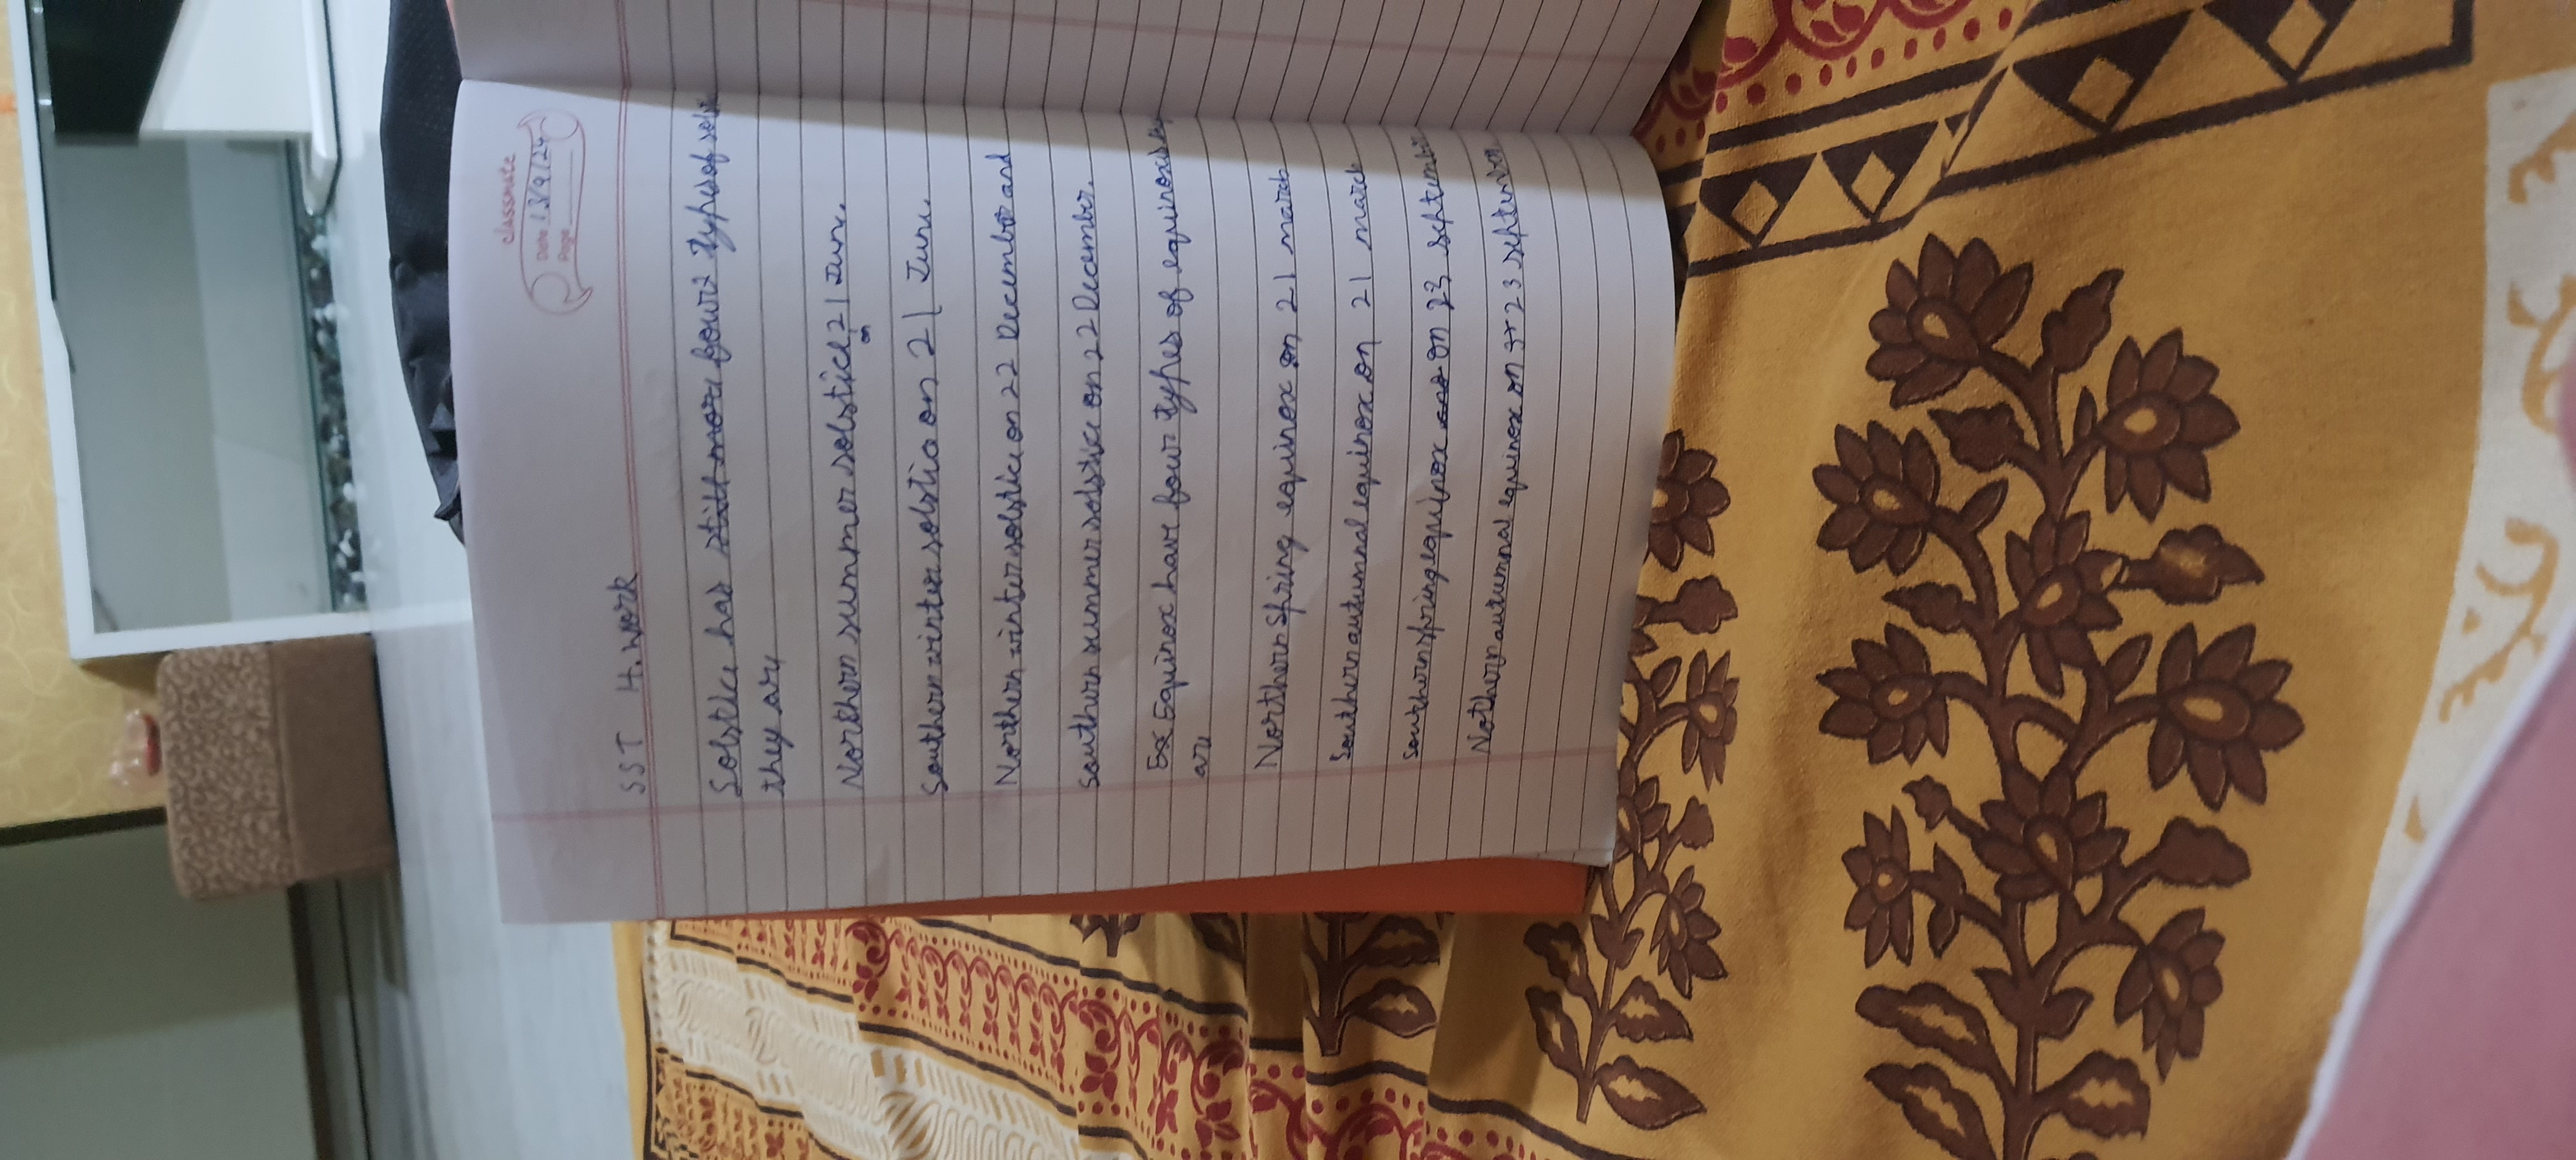 classmate
Date 13/9/24
Page
SST H.work
Solstice has still more four types of
they are
Northern summer solstice 21 June.
on
Southern winter solstice on 21 June.
Northern winter solstice on 22 December and
Southern summer solstice on 22 December.
Eox Equinox have four types of
are
Northern Spring equinox on 21 march
Southern autumnal equinox on 21 march
Southern spring equinox on 23
Nothern autumnal equinox on 23